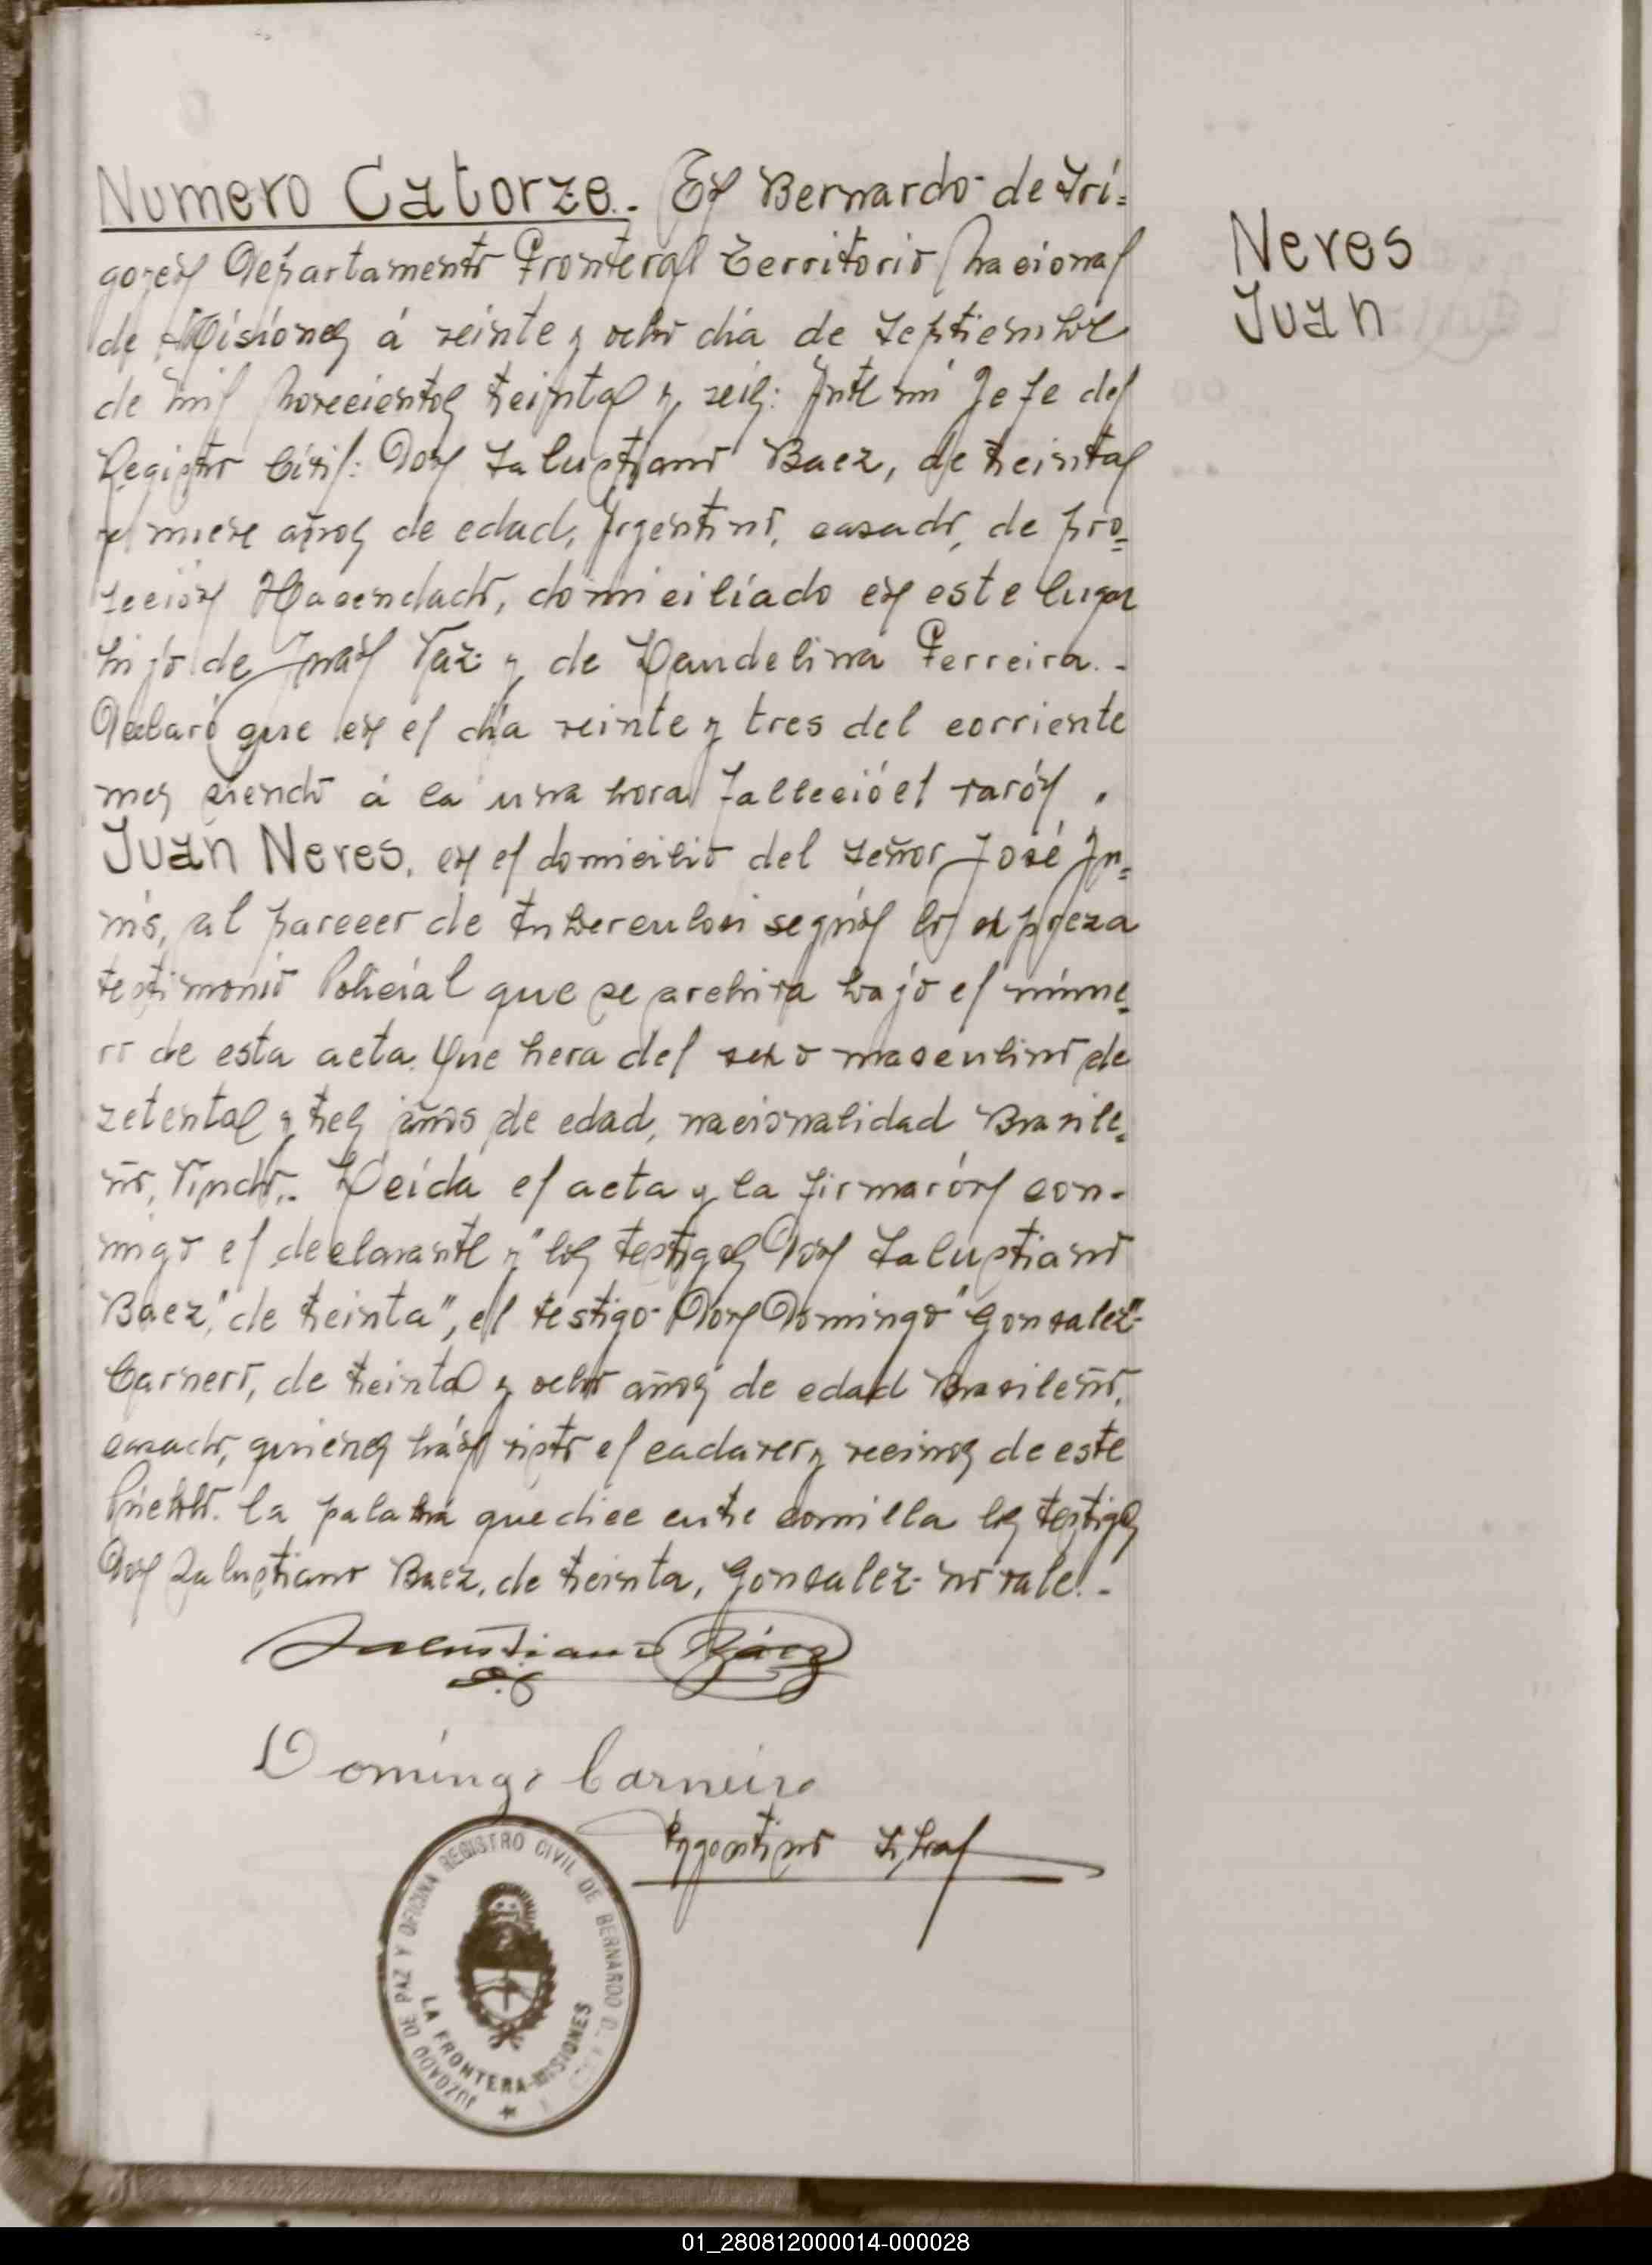 Numero Catorze. En Bernardo de Iri=
goyen Departamento Frontera Territorio Nacional
de Misiones á veinte y ocho día de Septiembre
de mil novecientos treinta y seis: Ante mi Jefe del
Registro Civil: Don Salustiano Baez, de treinta
y nueve años de edad, Argentino, casado, de pro=
feción Hacendado, domiciliado en este lugar
hijo de Juan Vaz y de Laudelina Ferreira.-
Declaró que en el día veinte y tres del corriente
mes siendo á la una hora falleció el varón
Juan Neves, en el domicilio del señor José
al parecer de tuberculosi según lo expreza
testimonio Policial que se archiva bajo el núme=
ro de esta acta. Que hera del sexo masculino de
setenta y tres años de edad, nacionalidad Brasile=
ño, Viudo.. Leída el acta y la firmarón con-
migo el declarante y "los testigos Don Salustiano
Baez," de treinta", el testigo Don Domingo "Gonzalez"-
Carnero, de treinta y ocho años de edad Brasileño,
casado, quienes hán visto el cadaver y vecinos de este
Pueblo. la palabra que dice entre comilla los testigos
Don Salustiano Baez, de treinta, Gonzalez- no vale.-
Salustiano Báez
Domingo Carneiro
Neves
Juan
JUZGADO DE PAZ Y OFICINA REGISTRO CIVIL DE BERNARDO D.
LA FRONTERA-MISIONES
01_280812000014-000028